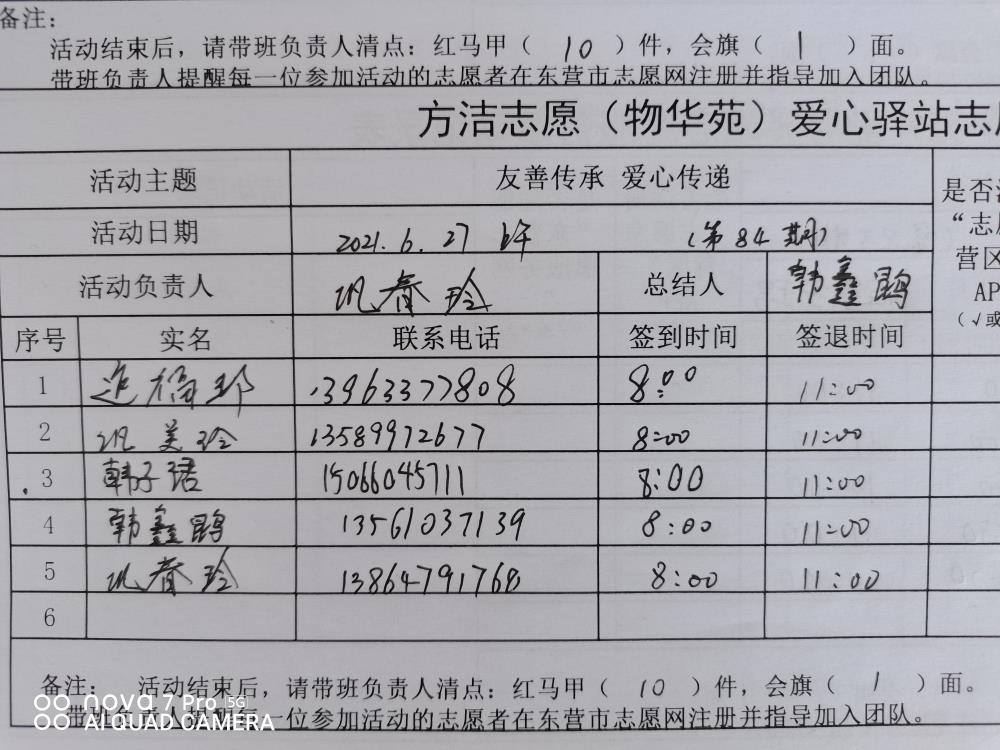 备注：
活动结束后，请带班负责人清点：红马甲（ 10 ）件，会旗（ 1 ）面。
带班负责人提醒每一位参加活动的志愿者在东营市志愿网注册并指导加入团队。
方洁志愿（物华苑）爱心驿站志
活动主题 友善传承 爱心传递
是否
活动日期 2021.6.27 （第84期）
“志
营区
活动负责人 巩春玲 总结人 韩鑫鹍
AP
（√或
序号 实名 联系电话 签到时间 签退时间
1 13963377808 8:00 11:00
2 巩美玲 13589972677 8:00 11:00
3 韩子珺 15066045711 8:00 11:00
4 韩鑫鹍 13561037139 8:00 11:00
5 巩春玲 13864791768 8:00 11:00
6
备注： 活动结束后，请带班负责人清点：红马甲（ 10 ）件，会旗（ 1 ）面。
带班负责人提醒每一位参加活动的志愿者在东营市志愿网注册并指导加入团队。
nova 7 Pro 5G
AI QUAD CAMERA